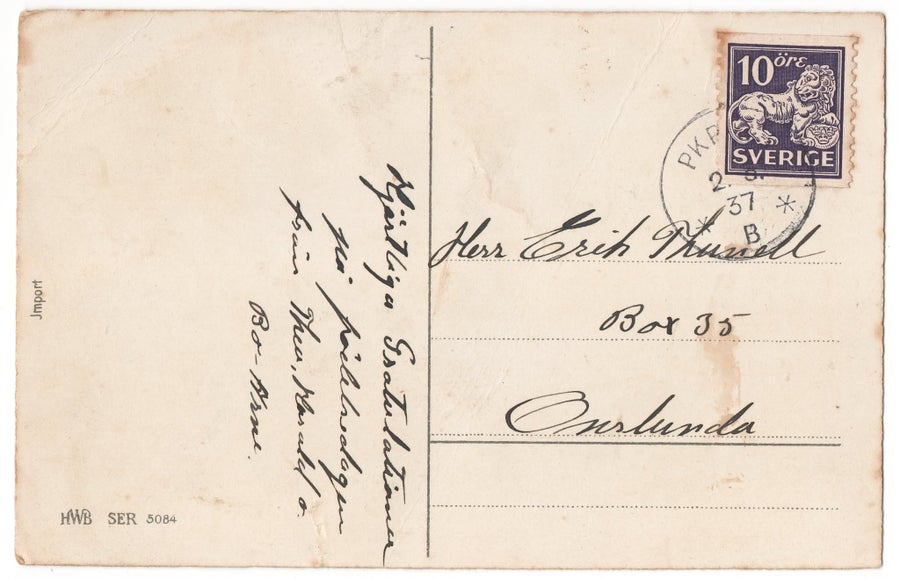 Hjärtliga Gratulationer
på födelsedagen
från Thea, Harald o.
Bo-Arne.
Jmport
HWB SER 5084
10 öre
SVERIGE
PKP
2.
37
B
Herr Erik Thunell
Box 35
Onslunda